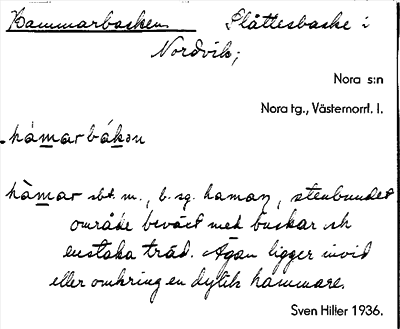 Hammarbacken Slåttesbacke i
Nordvik;
Nora s:n
Nora tg., Västernorrl. l.
hàmarbákən
hàmar sbt. m., b. sg. haman, stenbundet
område beväxt med buskar och
enstaka träd. Ägan ligger invid
eller omkring en dylik hammare.
Sven Hitter 1936.